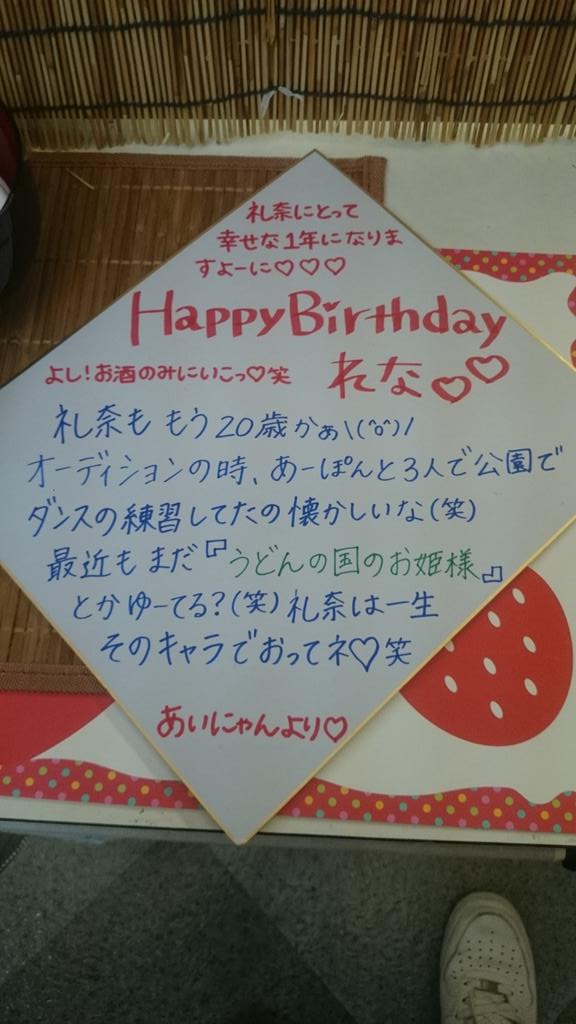 礼奈にとって
幸せな1年になりま
すよーに♡♡♡
HappyBirthday
よし!お酒のみにいこっ♡笑 れな♡♡
礼奈も もう20歳かぁ\(^o^)/
オーディションの時、あーぽんと3人で公園で
ダンスの練習してたの懐かしいな(笑)
最近もまだ『うどんの国のお姫様』
とかゆーてる?(笑)礼奈は一生
そのキャラでおってネ♡笑
あいにゃんより♡